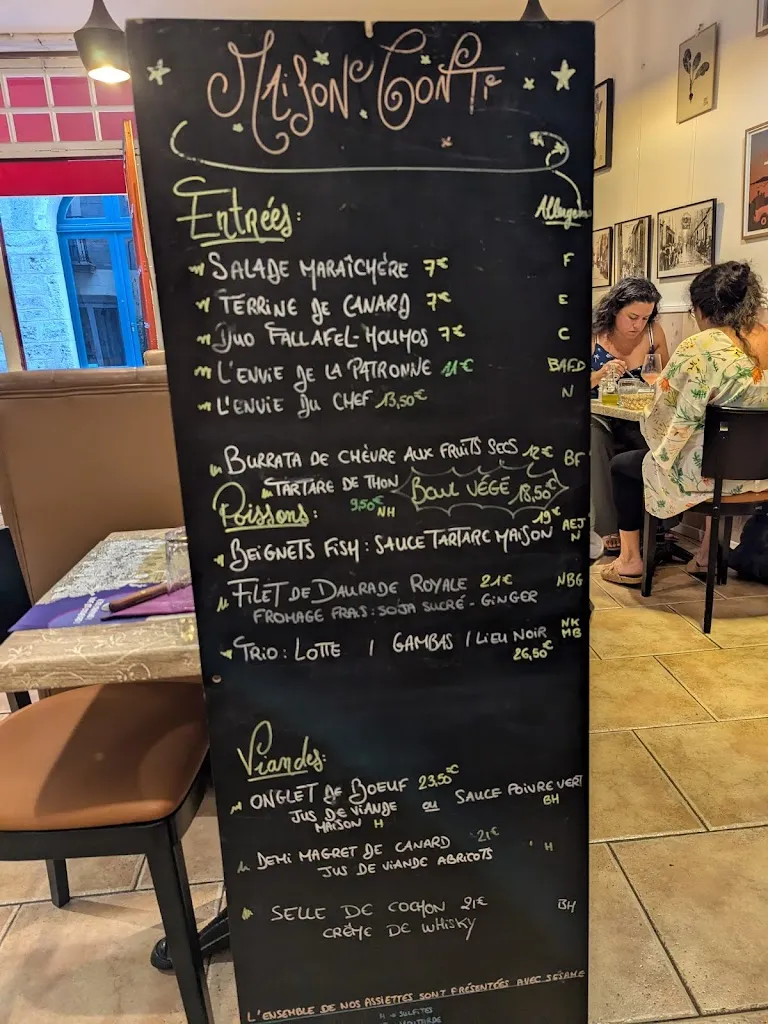 MAISON CONTI
Entrées: Allergènes
SALADE MARAÎCHÈRE 7€ F
TERRINE DE CANARD 7€ E
DUO FALLAFEL-HOUMOS 7€ C
L'ENVIE DE LA PATRONNE 11€ BAFD
L'ENVIE DU CHEF 13,50€ N
BURRATA DE CHÈVRE AUX FRUITS SECS 12€ BF
TARTARE DE THON 9,50€ NH
Bowl VÉGÉ 18,50€
Poissons:
BEIGNETS FISH : SAUCE TARTARE MAISON 19€ AEJ N
FILET DE DAURADE ROYALE 21€ NBG
FROMAGE FRAIS: SOJA SUCRÉ - GINGER
TRIO : LOTTE / GAMBAS / LIEU NOIR 26,50€ NK MB
Viandes:
ONGLET DE BOEUF 23,50€
JUS DE VIANDE MAISON H OU SAUCE POIVRE VERT BH
DEMI MAGRET DE CANARD 21€ H
JUS DE VIANDE ABRICOTS
SELLE DE COCHON 21€ BH
CRÈME DE WHISKY
L'ENSEMBLE DE NOS ASSIETTES SONT PRÉSENTÉES AVEC SÉSAME
H → SULFITES
MOUTARDE